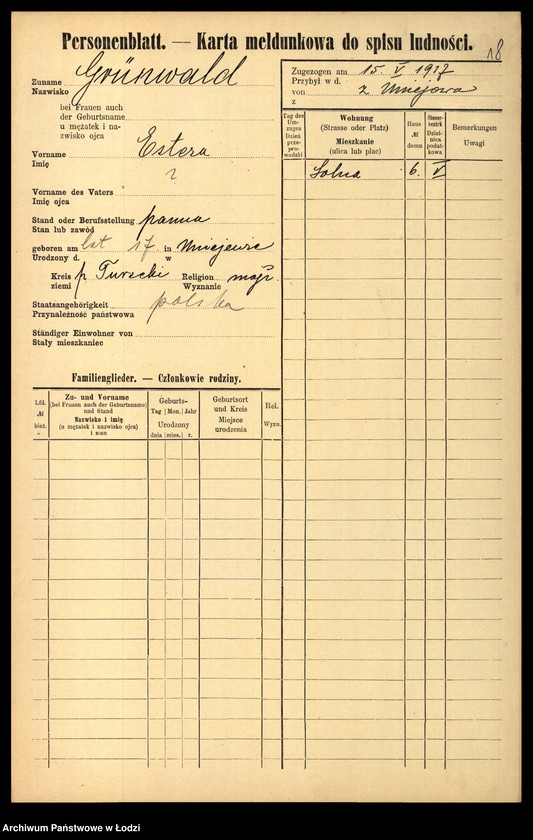 Personenblatt. — Karta meldunkowa do spisu ludności.
18
Zuname Grünwald
Nazwisko
bei Frauen auch
der Geburtsname
u mężatek i na-
zwisko ojca
Vorname Estera
Imię
?
Vorname des Vaters
Imię ojca
Stand oder Berufsstellung panna
Stan lub zawód
geboren am lat 17. in
Urodzony d. w
Kreis p. Turecki Religion mojż.
ziemi Wyznanie
Staatsangehörigkeit polska
Przynależność państwowa
Ständiger Einwohner von
Stały mieszkaniec
Zugezogen am 15. V 1917
Przybył w d.
von z Uniejowa
z
Tag des Um-zuges
Dzień przepro-wadzki
Wohnung
(Strasse oder Platz)
Mieszkanie
(ulica lub plac)
Haus
№
domu
Steuer-bezirk
Dziel-nica podat-kowa
Bemerkungen
Uwagi
Solna 6. V
Familienglieder. — Członkowie rodziny.
Lfd.
№
bież.
Zu- und Vorname
(bei Frauen auch der Geburtsname)
und Stand
Nazwisko i imię
(u mężatek i nazwisko ojca)
i stan
Geburts-
Tag Mon. Jahr
Urodzony
dnia mies. r.
Geburtsort
und Kreis
Miejsce
urodzenia
Rel.
Wyzn.
Archiwum Państwowe w Łodzi